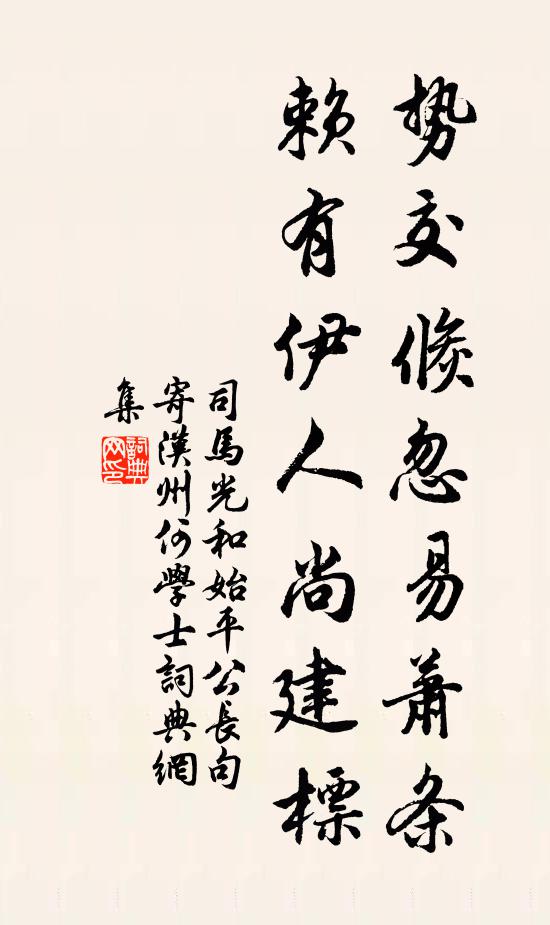 势交倏忽易蕭条
賴有伊人尚建標
司馬光和始平公長句
寄漢州何學士詞典網
集
詞典網印